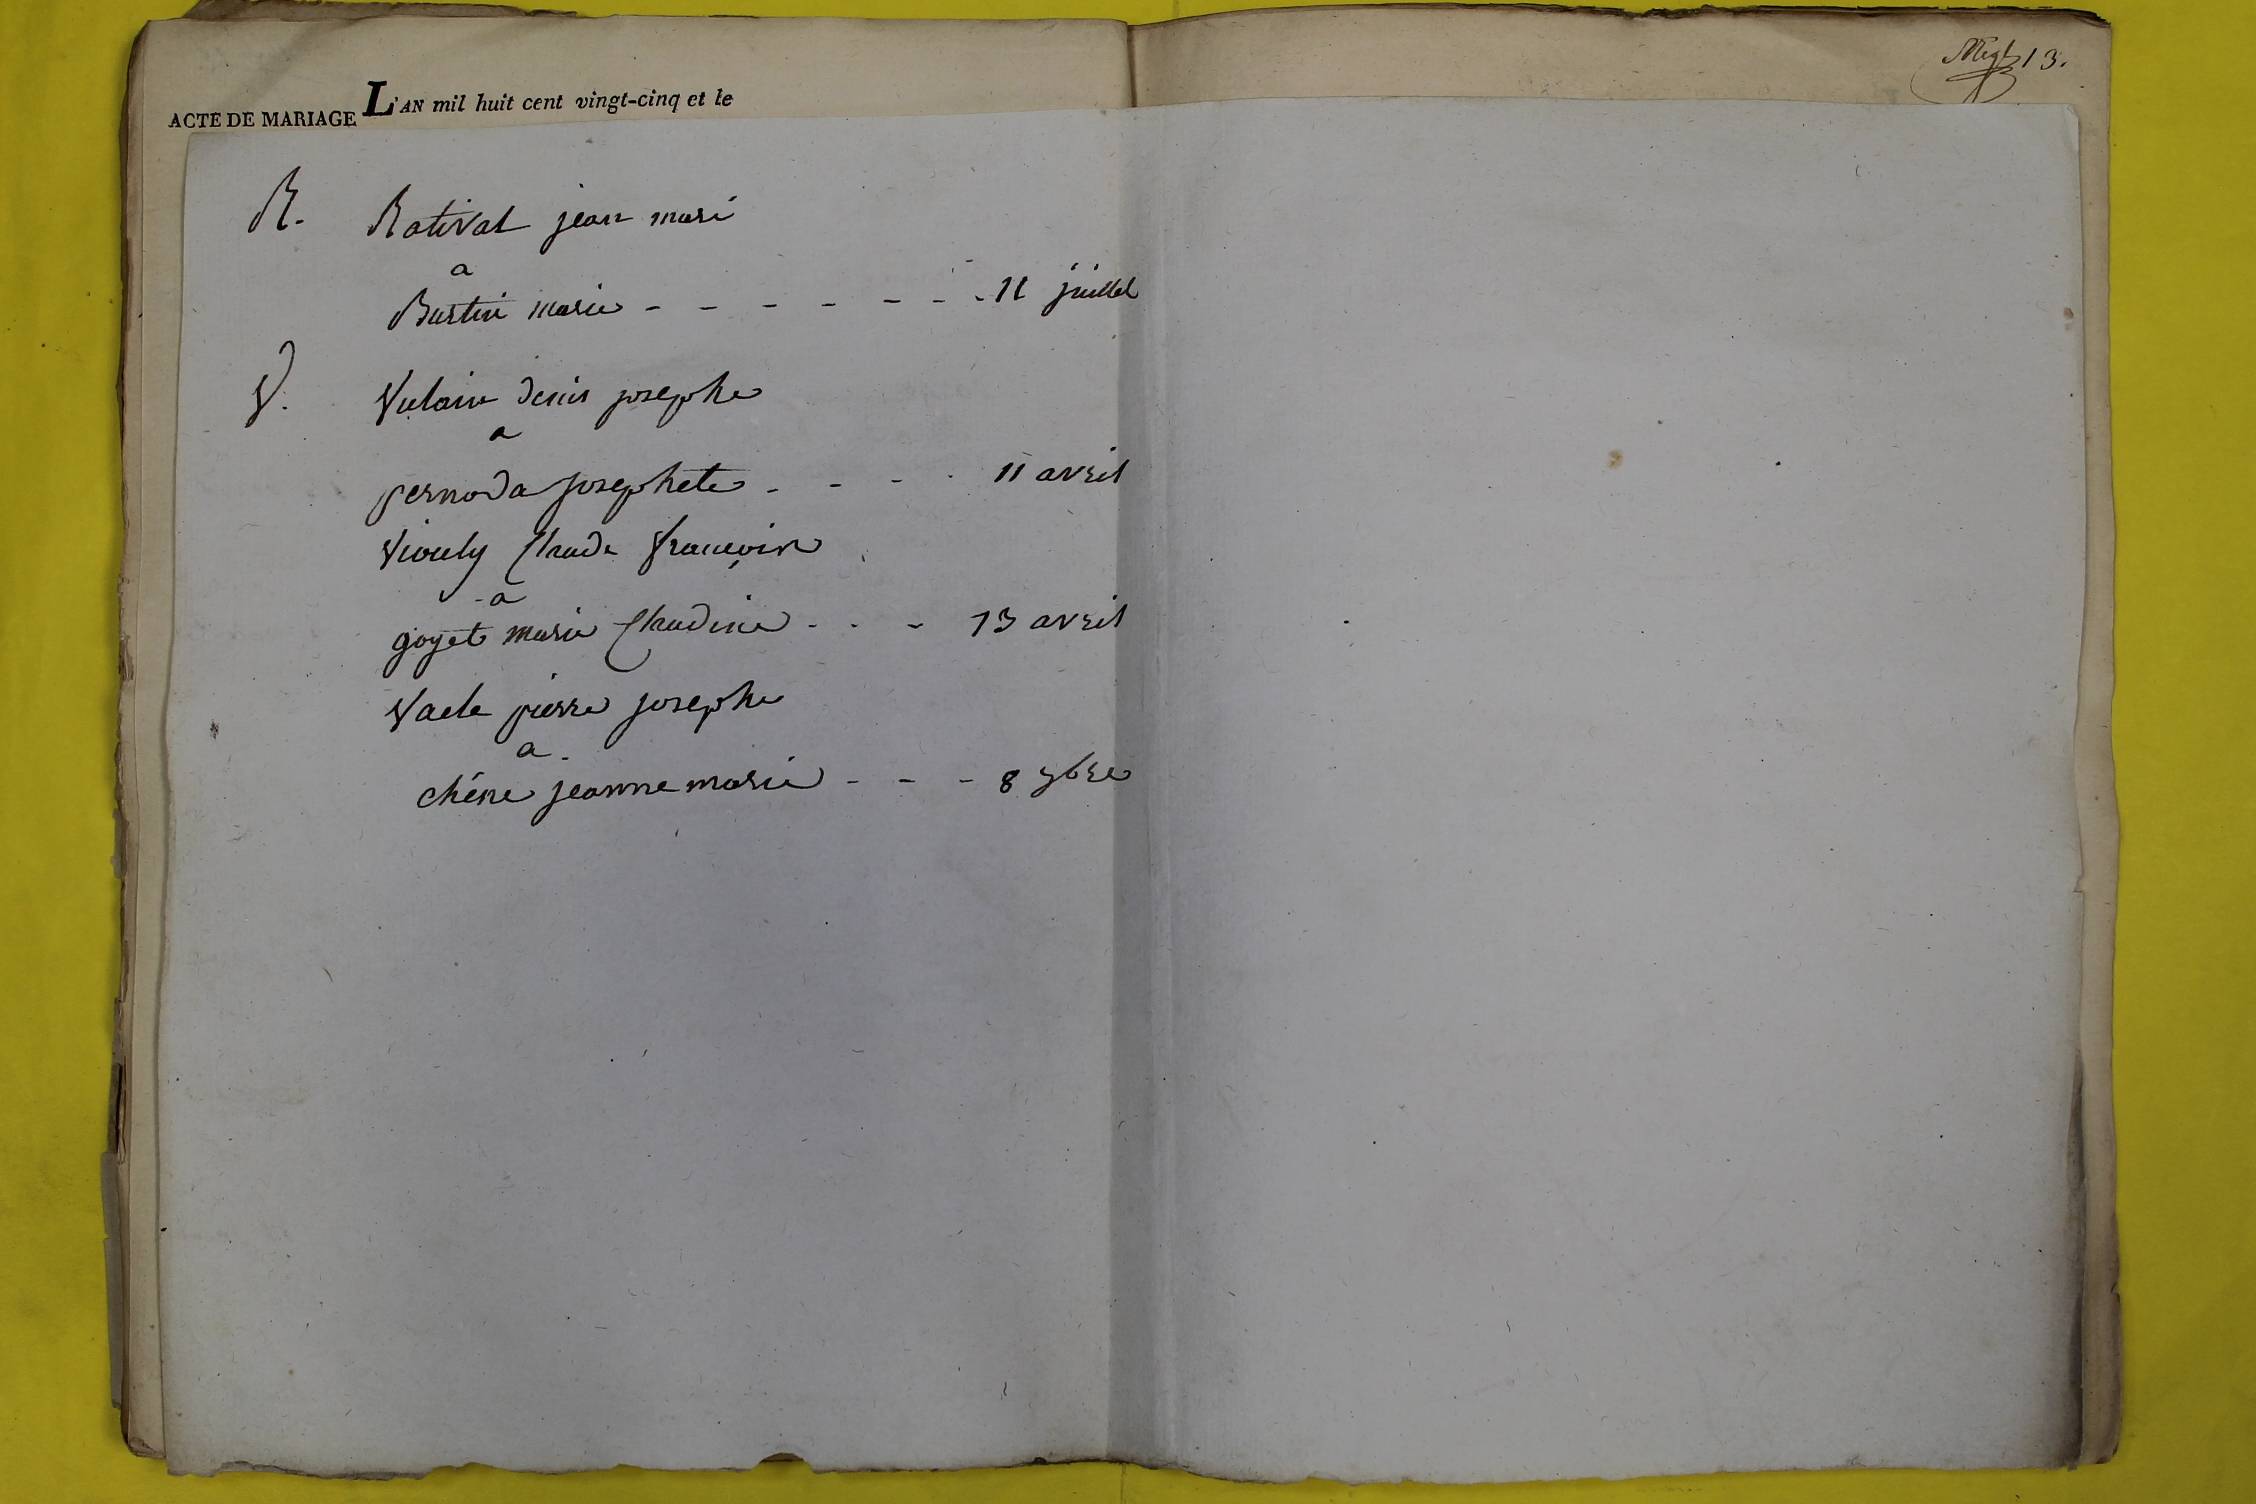 L'AN mil huit cent vingt-cinq et le
ACTE DE MARIAGE
13.
R. Rativat jean mari
a
Burtin marie - - - - - - - 11 juillet
V. Vulain denis josephe
a
pernoda josephete - - - - 11 avril
Viouly Claude françois
a
goyet marie Claudine - - - 13 avril
Vacle pierre josephe
a
chêne jeanne marie - - - 8 9bre